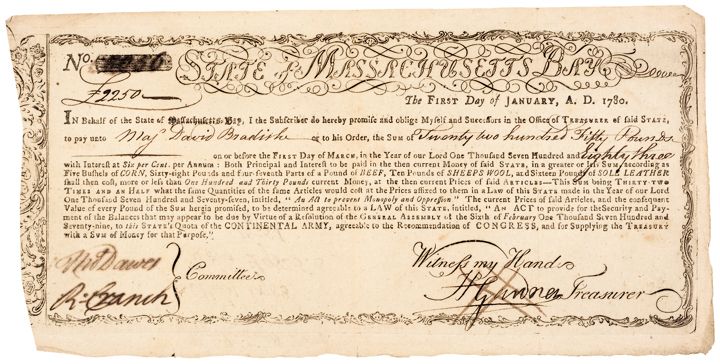 No.
STATE of MASSACHUSETTS BAY
£2250
The FIRST Day of JANUARY, A. D. 1780.
IN Behalf of the State of Massachusetts-Bay, I the Subscriber do hereby promise and oblige Myself and Successors in the Office of TREASURER of said STATE,
to pay unto Majr David Bradish or to his Order, the SUM of Twenty two hundred Fifty Pounds
on or before the FIRST Day of MARCH, in the Year of our Lord One Thousand Seven Hundred and Eighty three
with Interest at Six per Cent. per ANNUM: Both Principal and Interest to be paid in the then current Money of said STATE, in a greater or less SUM, according as
Five Bushels of CORN, Sixty-eight Pounds and four-seventh Parts of a Pound of BEEF, Ten Pounds of SHEEPS WOOL, and Sixteen Pounds of SOLE LEATHER
shall then cost, more or less than One Hundred and Thirty Pounds current Money, at the then current Prices of said ARTICLES—This SUM being THIRTY-TWO
TIMES AND AN HALF what the same Quantities of the same Articles would cost at the Prices affixed to them in a Law of this STATE made in the Year of our Lord
One Thousand Seven Hundred and Seventy-seven, intitled, "An Act to prevent Monopoly and Oppression" The current Prices of said Articles, and the consequent
Value of every Pound of the SUM herein promised, to be determined agreeable to a LAW of this STATE, intitled, "An ACT to provide for the Security and Pay-
ment of the Balances that may appear to be due by Virtue of a Resolution of the GENERAL ASSEMBLY of the Sixth of February One Thousand Seven Hundred and
Seventy-nine, to this STATE'S Quota of the CONTINENTAL ARMY, agreeable to the Recommendation of CONGRESS, and for Supplying the TREASURY
with a SUM of Money for that Purpose,"
Witness my Hand
Thos Dawes
Committee
R. Cranch
H Gardner Treasurer